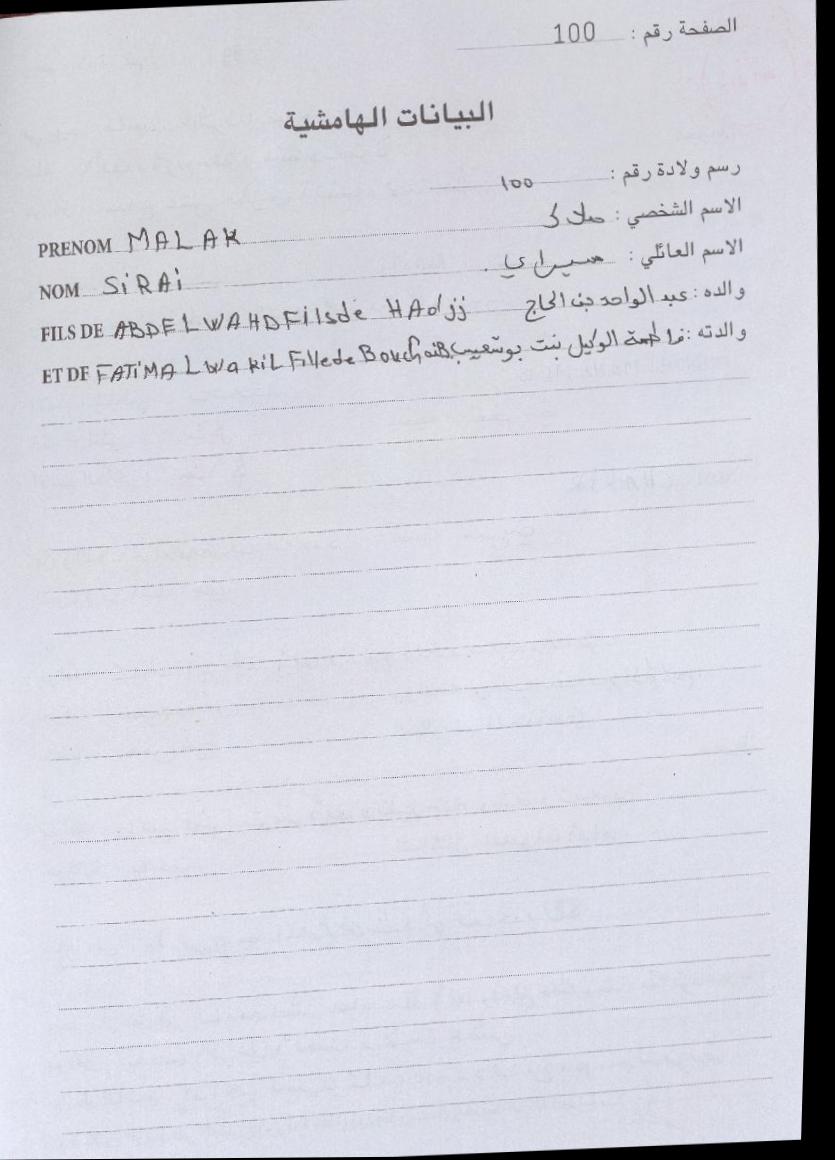 الصفحة رقم : 100
البيانات الهامشية
رسم ولادة رقم : 100
الاسم الشخصي : ملاك
PRENOM MALAK
الاسم العائلي : سيراي
NOM SiRAi
والده : عبد الواحد بن الحاج
FILS DE ABDELWAHD Fils de HAdjj
والدته : فاطمة الوكيل بنت بوشعيب
ET DE FATiMA LWakiL Fille de BouchaiB